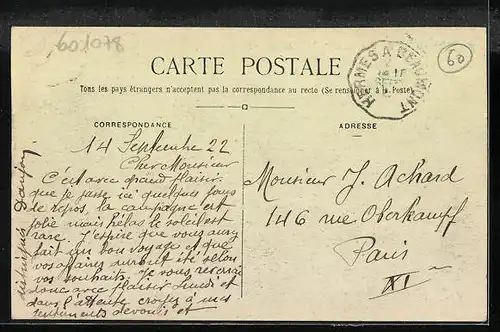 601078
60
HERMES A BEAUMONT
CARTE POSTALE
Tous les pays étrangers n'acceptent pas la correspondance au recto (Se renseigner à la Poste)
CORRESPONDANCE
ADRESSE
14 Septembre 22
Cher Monsieur
C'est avec grand plaisir
que je passe ici quelques jours
de repos, la campagne est
jolie mais hélas le soleil est
rare. J'espère que vous aurez
fait un bon voyage et que
vos affaires auront été selon
vos souhaits. Je vous reverrai
donc avec plaisir Lundi et
dans l'attente croyez à mes
sentiments dévoués et
distingués
Monsieur J. Achard
146 rue Oberkampf
Paris
XI